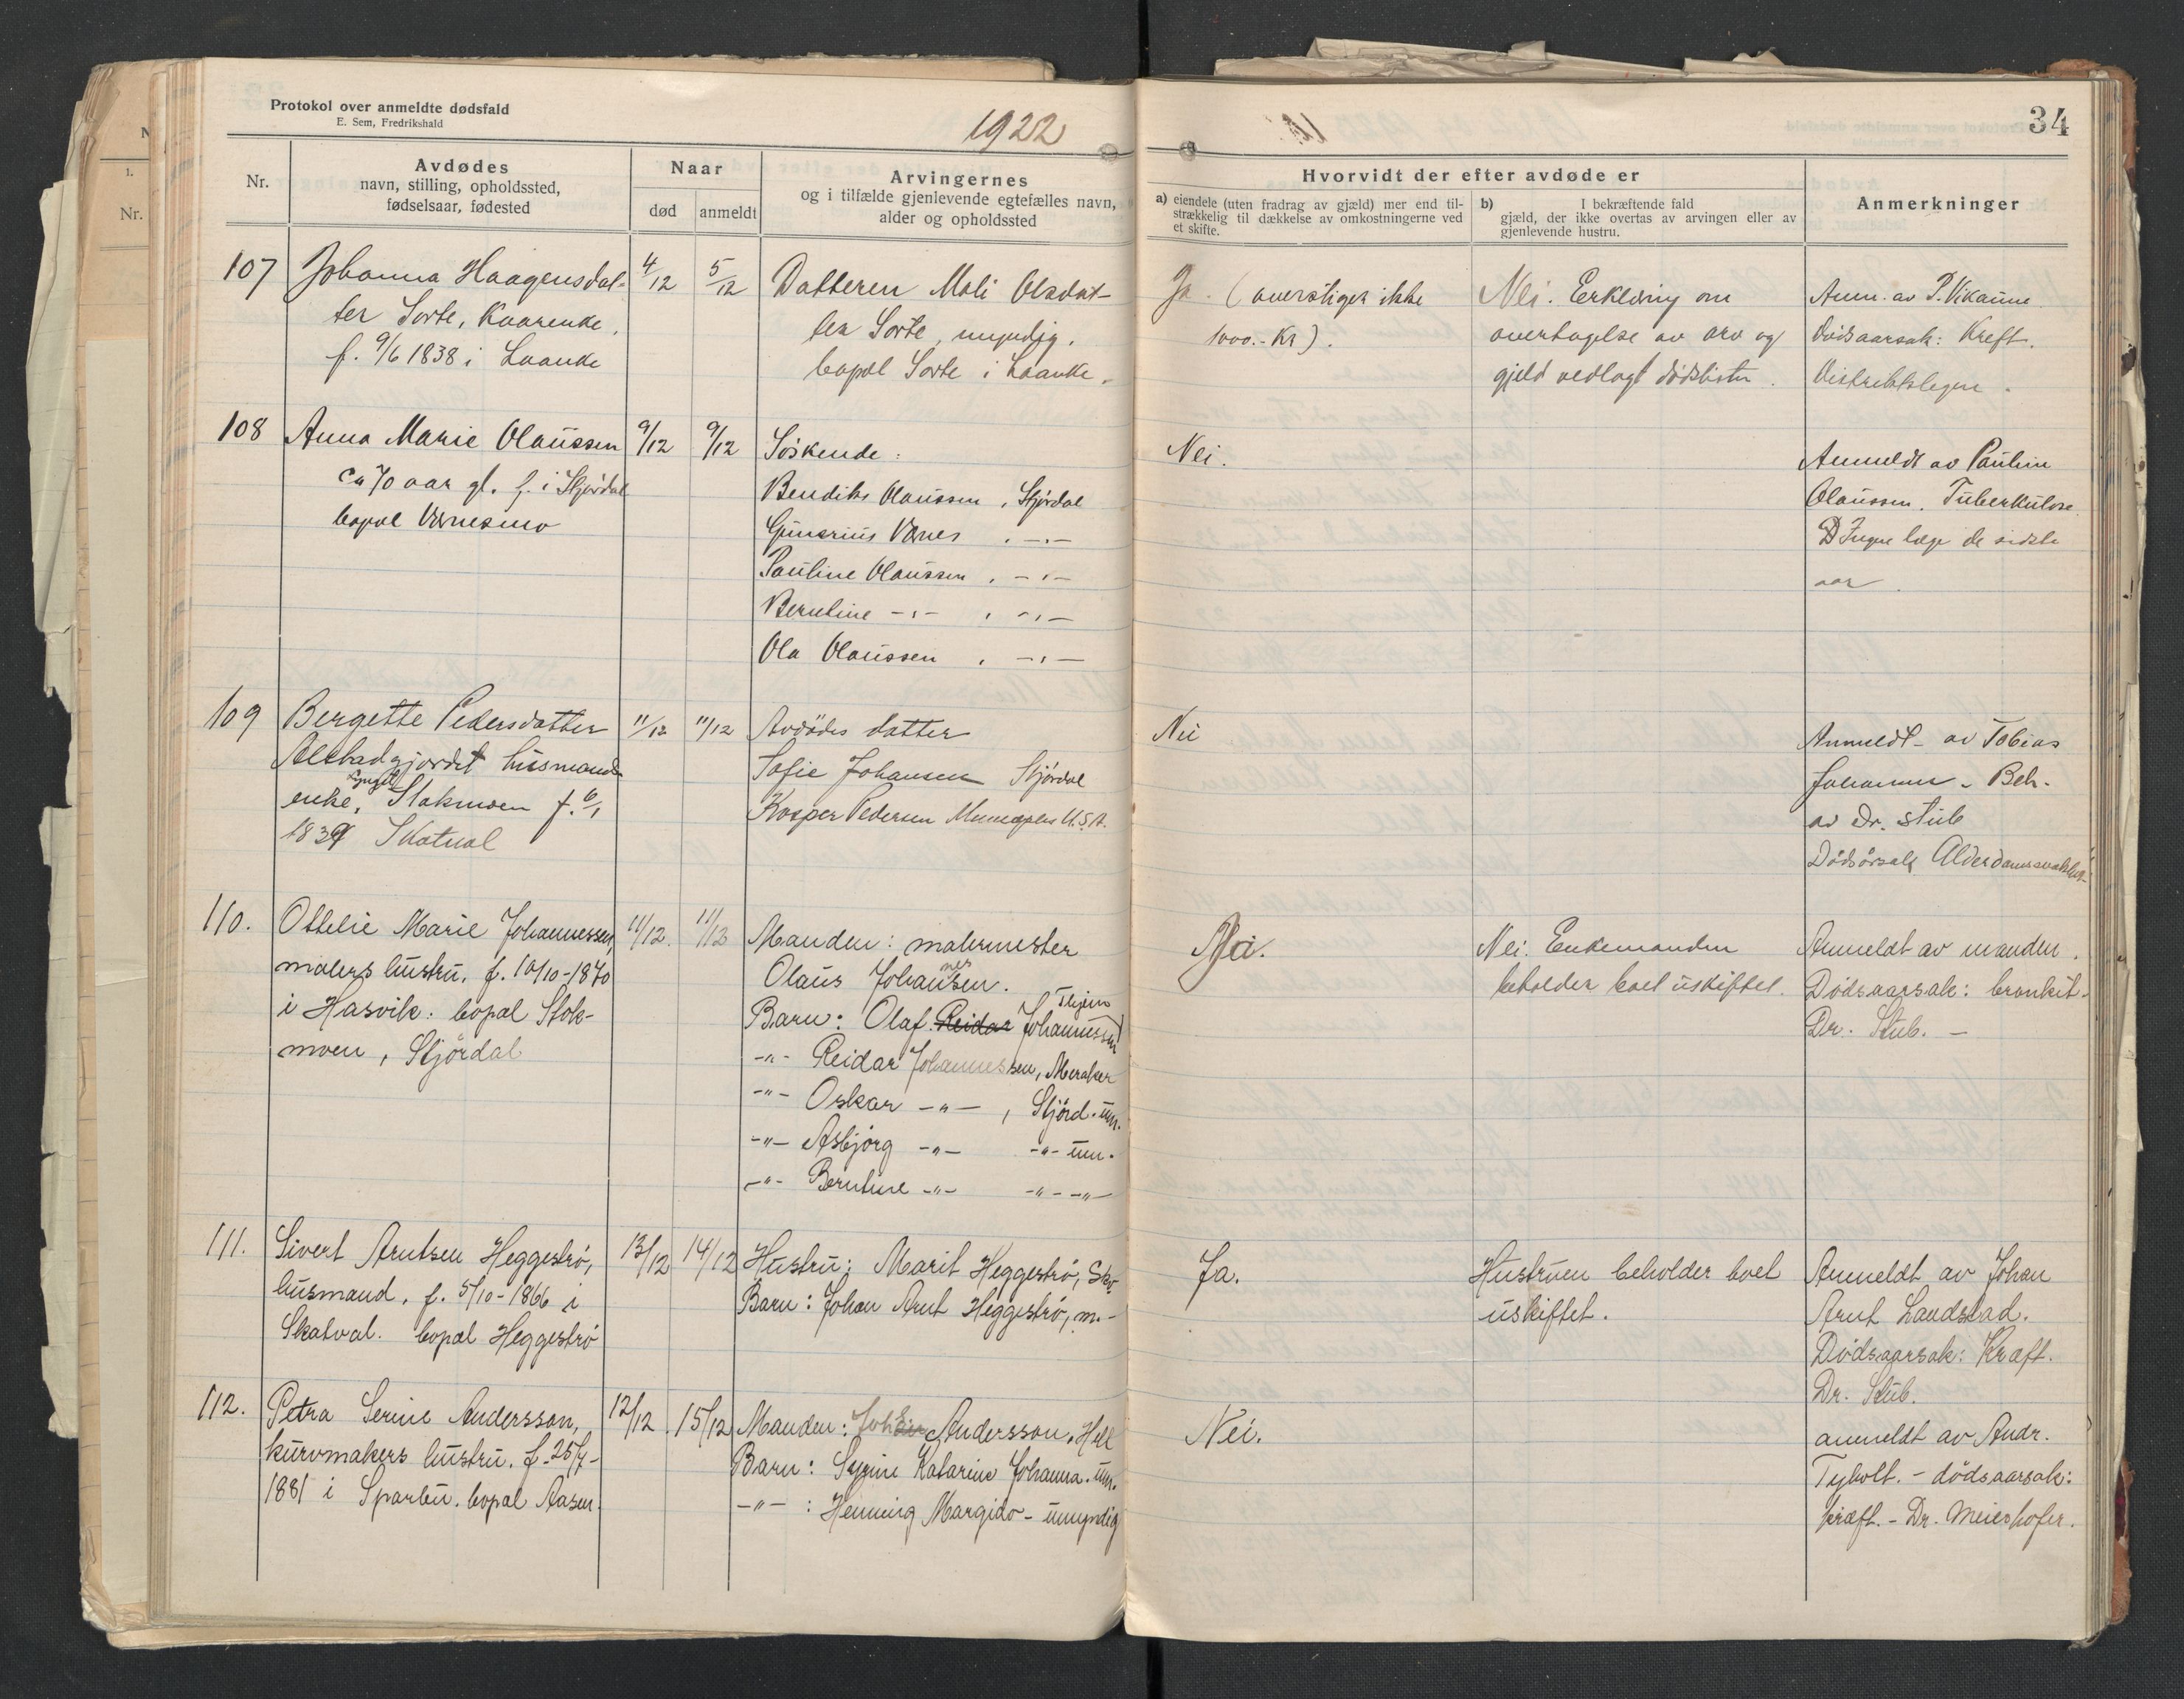 Protokol over anmeldte dødsfald
E. Sem, Fredrikshald
1922
34
Nr.
Avdødes
navn, stilling, opholdssted,
fødselsaar, fødested
Naar
død
anmeldt
Arvingernes
og i tilfælde gjenlevende egtefælles navn,
alder og opholdssted
Hvorvidt der efter avdøde er
a) eiendele (uten fradrag av gjæld) mer end til-
strækkelig til dækkelse av omkostningerne ved
et skifte.
b) I bekræftende fald
gjæld, der ikke overtas av arvingen eller av
gjenlevende hustru.
Anmerkninger
107
Johanna Haagensdat-
ter Sorte, Kaarenke,
f. 9/6 1838 i Laanke
4/12
5/12
Datteren Mali Olsdat-
ter Sorte, umyndig.
bopæl Sorte i Laanke.
Ja. (overstiger ikke
1000.- Kr).
Nei. Erklæring om
overtagelse av arv og
gjeld vedlagt dødslisten.
Anm. av P. Vikanne.
Dødsaarsak: Kreft.
Distriktslegen.
108
Anna Marie Olaussen
ca 70 aar gl. f. i Stjørdal
bopæl Værnesmo
9/12
9/12
Søskende:
Bendikt Olaussen, Stjørdal
Gunerius Værnes , -"-
Pauline Olaussen , -"-
Berntine -"- , -"-
Ola Olaussen , -"-
Nei.
Anmeldt av Pauline
Olaussen. Tuberkulose.
Ingen læge de sidste
aar.
109
Bergette Pedersdatter
Alstadgjordet husmands
enke, Stokmoen f. 6/1
1839 Skatval
11/12
11/12
Avdødes datter
Sofie Johansen Stjørdal
Kasper Pedersen U.S.A.
Nei
Anmeldt av Tobias
Johansen. Beh.
av Dr. Stub
Dødsårsak Alderdomssvakhet
110.
Ottelie Marie Johannessen,
malers hustru. f. 10/10-1870
i Hasvik. bopæl Stok-
moen, Stjørdal
11/12.
11/12
Manden: malermester
Olaus Johannessen.
Barn: Olaf Reidar Johannessen, Thjem
-"- Reidar Johannessen, Meraker
-"- Oskar -"- , Stjørd. um.
-"- Asbjørg -"- -"- um.
-"- Berntine -"- -"- -"-
Nei.
Nei. Enkemanden
beholder boet uskiftet.
Anmeldt av manden.
Dødsaarsak: bronkit.
Dr. Stub. -
111.
Sivert Arntsen Heggestrø,
husmand. f. 5/10-1866 i
Skatval. bopæl Heggestrø
13/12
14/12
Hustru: Marit Heggestrø, Skv.
Barn: Johan Arnt Heggestrø, m.-
Ja.
Hustruen beholder boet
uskiftet.
Anmeldt av Johan
Arnt Landstad.
Dødsaarsak: Kræft.
Dr. Stub.
112.
Petra Serine Andersson,
kurvmakers hustru. f. 25/7-
1881 i Sparbu. bopæl Aasen.
12/12.
15/12
Manden: Andersson. Hell
Barn: Signe Katarine Johanna. um.
-"- : Henning Margido - umyndig
Nei.
anmeldt av Andr.
Tyholt. - dødsaarsak:
kræft. - Dr. Meieshofer.